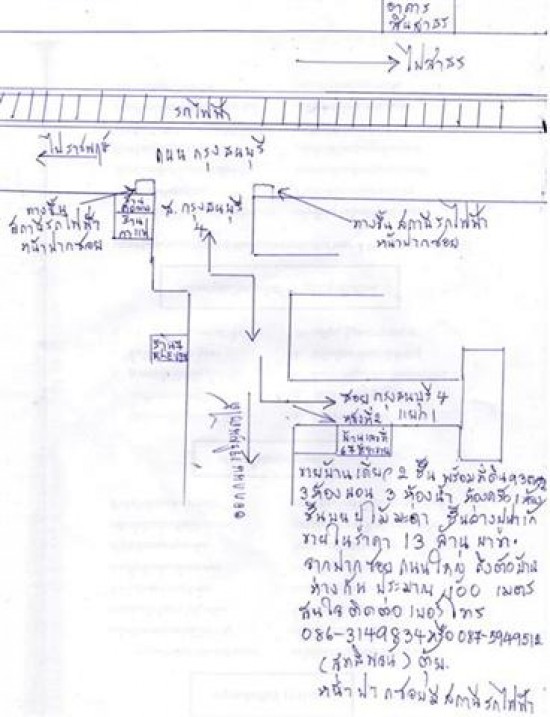 อาคาร
สินสาธร
ไปสาธร
รถไฟฟ้า
ไปราชพฤกษ์
ถนน กรุงธนบุรี
ทางขึ้น
สถานีรถไฟฟ้า
หน้าปากซอย
ร้าน
ร้าน
กาแฟ
ซ. กรุงธนบุรี
4
ทางขึ้น สถานีรถไฟฟ้า
หน้าปากซอย
ร้าน 7
ซอย กรุงธนบุรี 4
แยก 1
หลังที่ 2
บ้านเลขที่
ขายบ้านเดี่ยว 2 ชั้น พร้อมที่ดิน
3 ห้องนอน 3 ห้องน้ำ ห้องครัว 1 ห้อง
ชั้นบน ปูไม้มะค่า ชั้นล่างปูปาเก้
ขายในราคา 13 ล้าน บาท.
จากปากซอย ถนนใหญ่ ถึงตัวบ้าน
ห่างกัน ประมาณ 100 เมตร
สนใจ ติดต่อ เบอร์โทร
086-3149834 หรือ 087-5949512
หน้าปากซอยมีสถานีรถไฟฟ้า